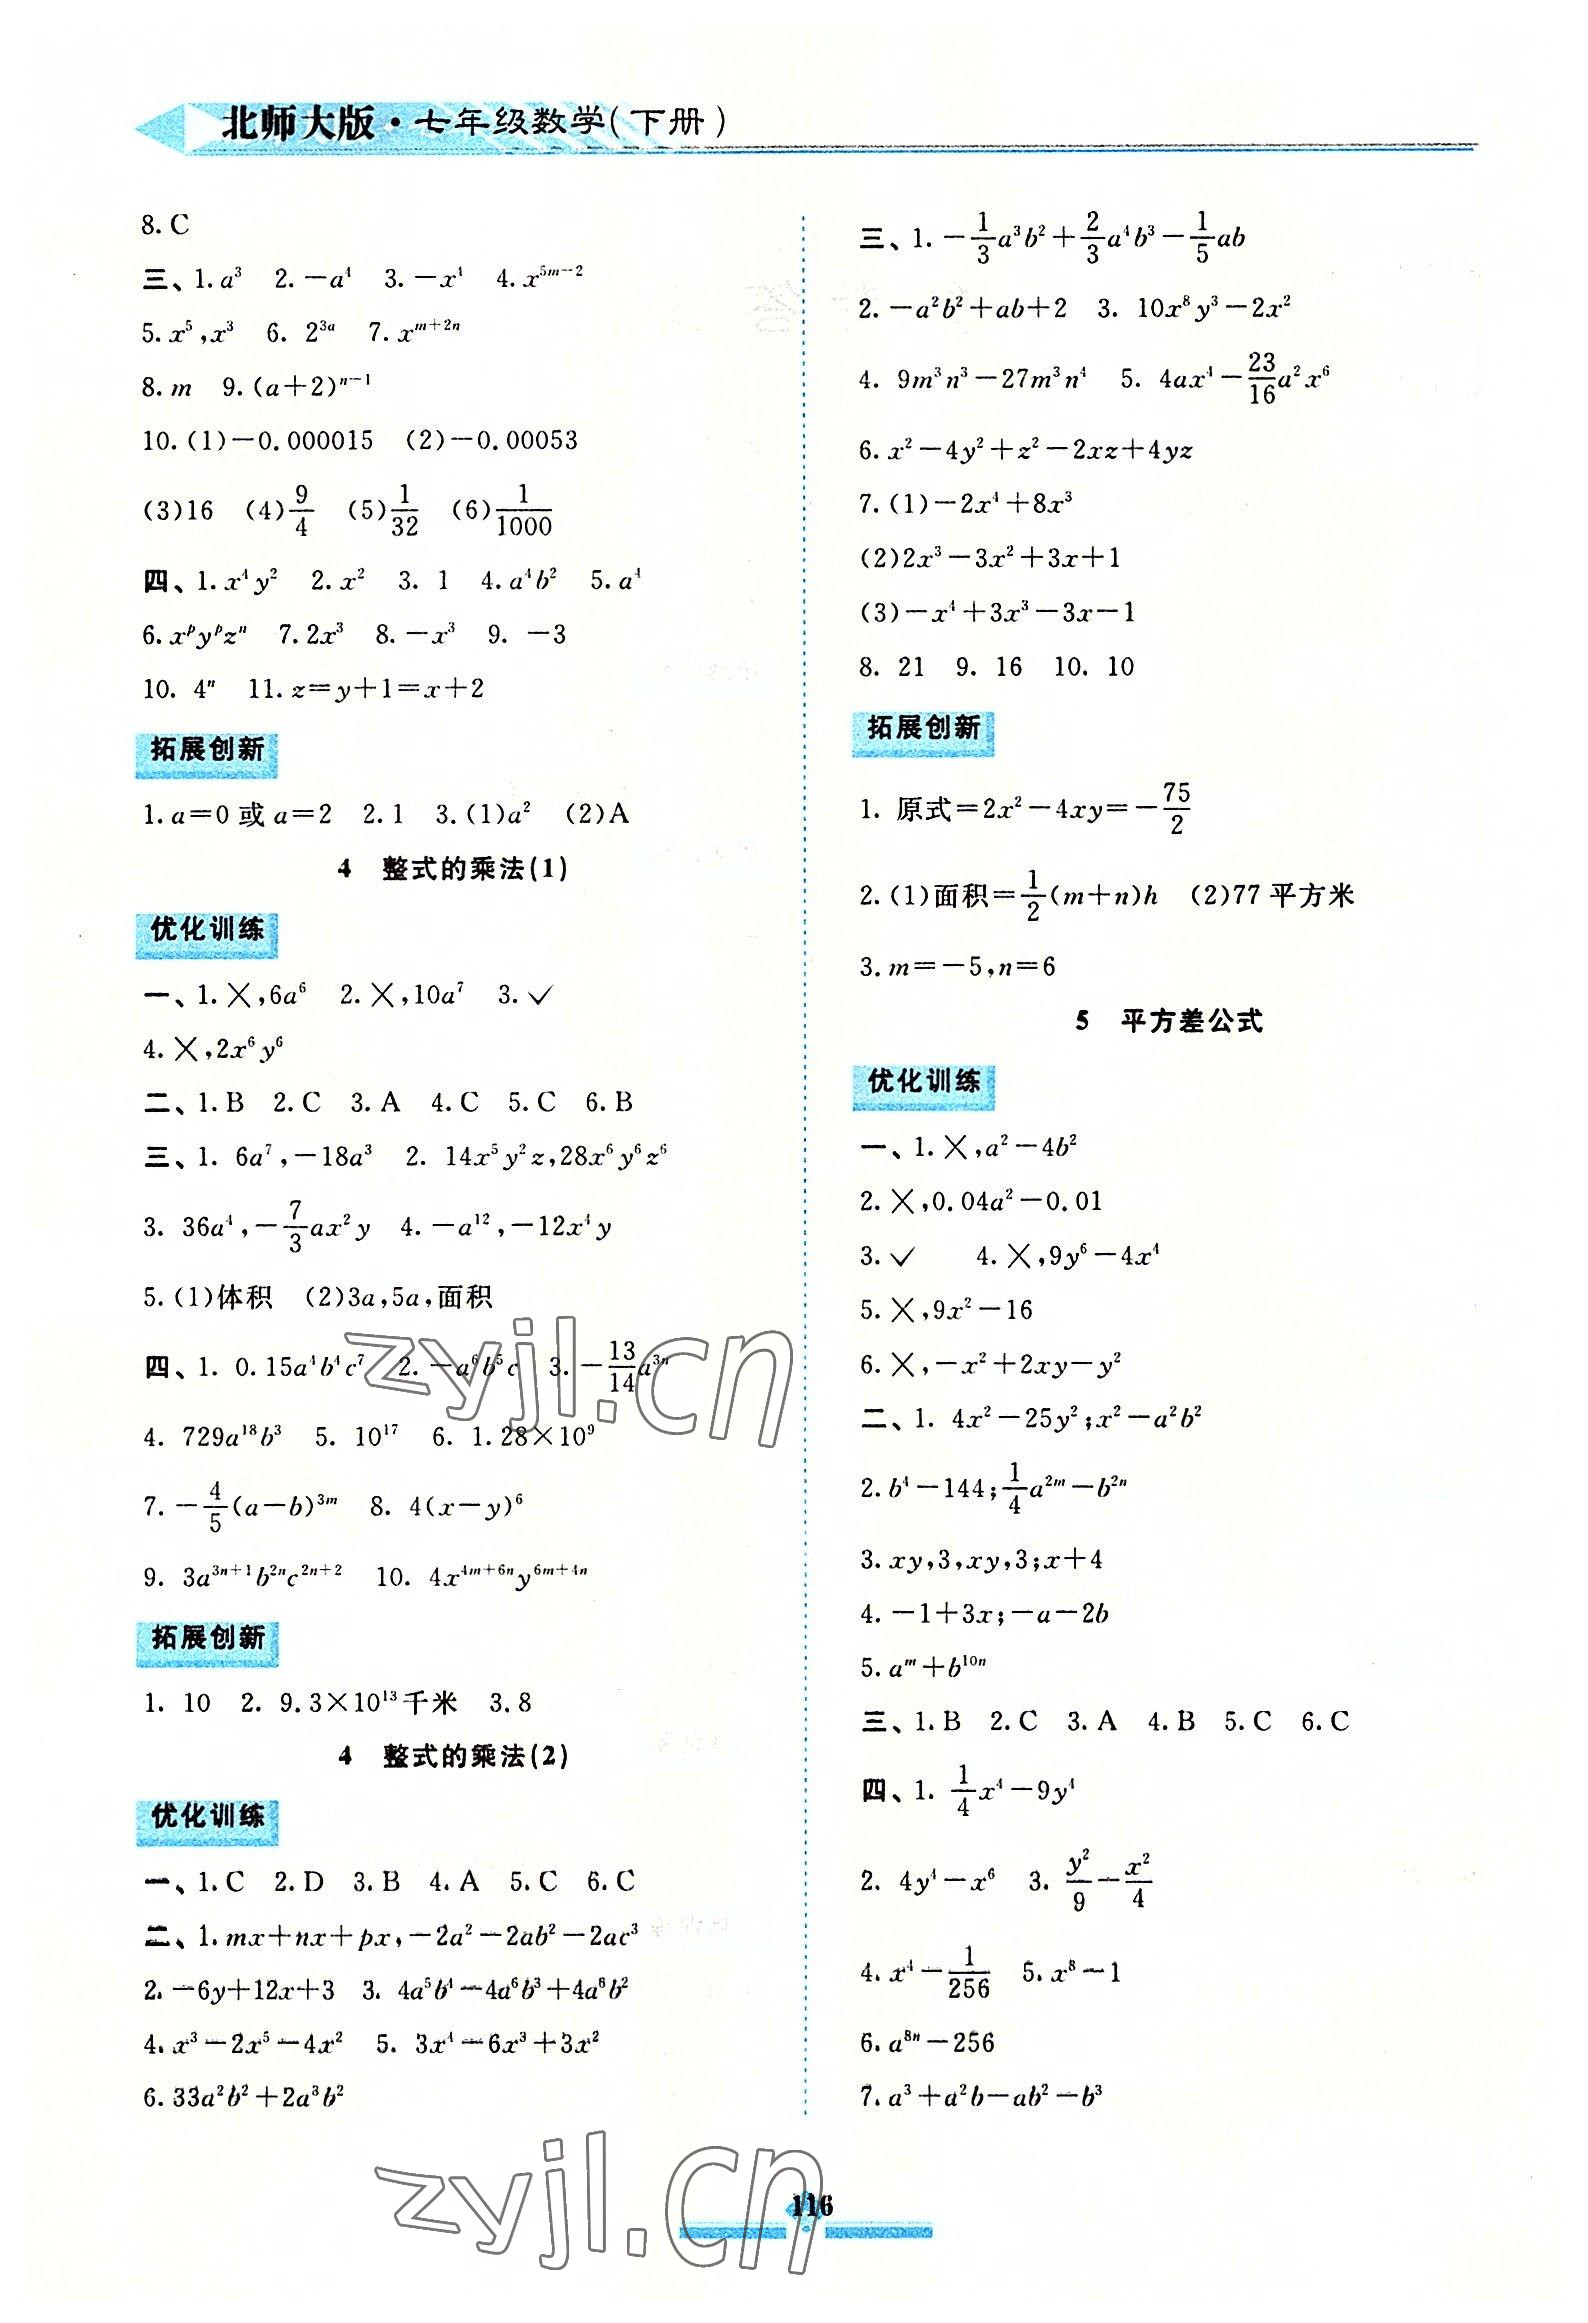 北师大版·七年级数学(下册)
8. C
三、1. a³ 2. −a⁴ 3. −x⁴ 4. x⁵ᵐ⁻²
5. x⁵,x³ 6. 2³ᵃ 7. xᵐ⁺²ⁿ
8. m 9. (a+2)ⁿ⁻¹
10. (1)−0.000015 (2)−0.00053
(3)16 (4)9/4 (5)1/32 (6)1/1000
四、1. x⁴y² 2. x² 3. 1 4. a⁴b² 5. a⁴
6. xᵖyᵖzⁿ 7. 2x³ 8. −x³ 9. −3
10. 4ⁿ 11. z=y+1=x+2
拓展创新
1. a=0或a=2 2. 1 3. (1)a² (2)A
4 整式的乘法(1)
优化训练
一、1. ×,6a⁶ 2. ×,10a⁷ 3. ✓
4. ×,2x⁶y⁶
二、1. B 2. C 3. A 4. C 5. C 6. B
三、1. 6a⁷,−18a³ 2. 14x⁵y²z,28x⁶y⁶z⁶
3. 36a⁴,−7/3ax²y 4. −a¹²,−12x⁴y
5. (1)体积 (2)3a,5a,面积
四、1. 0.15a⁴b⁴c⁷ 2. −a⁶b⁵c 3. −13/14a³ⁿ
4. 729a¹⁸b³ 5. 10¹⁷ 6. 1.28×10⁹
7. −4/5(a−b)³ᵐ 8. 4(x−y)⁶
9. 3a³ⁿ⁺¹b²ⁿc²ⁿ⁺² 10. 4x⁴ᵐ⁺⁶ⁿy⁶ᵐ⁺⁴ⁿ
拓展创新
1. 10 2. 9.3×10¹³千米 3. 8
4 整式的乘法(2)
优化训练
一、1. C 2. D 3. B 4. A 5. C 6. C
二、1. mx+nx+px,−2a²−2ab²−2ac³
2. −6y+12x+3 3. 4a⁵b⁴−4a⁶b³+4a⁶b²
4. x³−2x⁵−4x² 5. 3x⁴−6x³+3x²
6. 33a²b²+2a³b²
三、1. −1/3a³b²+2/3a⁴b³−1/5ab
2. −a²b²+ab+2 3. 10x⁸y³−2x²
4. 9m³n³−27m³n⁴ 5. 4ax⁴−23/16a²x⁶
6. x²−4y²+z²−2xz+4yz
7. (1)−2x⁴+8x³
(2)2x³−3x²+3x+1
(3)−x⁴+3x³−3x−1
8. 21 9. 16 10. 10
拓展创新
1. 原式=2x²−4xy=−75/2
2. (1)面积=1/2(m+n)h (2)77平方米
3. m=−5,n=6
5 平方差公式
优化训练
一、1. ×,a²−4b²
2. ×,0.04a²−0.01
3. ✓ 4. ×,9y⁶−4x⁴
5. ×,9x²−16
6. ×,−x²+2xy−y²
二、1. 4x²−25y²;x²−a²b²
2. b⁴−144;1/4a²ᵐ−b²ⁿ
3. xy,3,xy,3;x+4
4. −1+3x;−a−2b
5. aᵐ+b¹⁰ⁿ
三、1. B 2. C 3. A 4. B 5. C 6. C
四、1. 1/4x⁴−9y⁴
2. 4y⁴−x⁶ 3. y²/9−x²/4
4. x⁴−1/256 5. x⁸−1
6. a⁸ⁿ−256
7. a³+a²b−ab²−b³
116
zyjl.cn
zyjl.cn